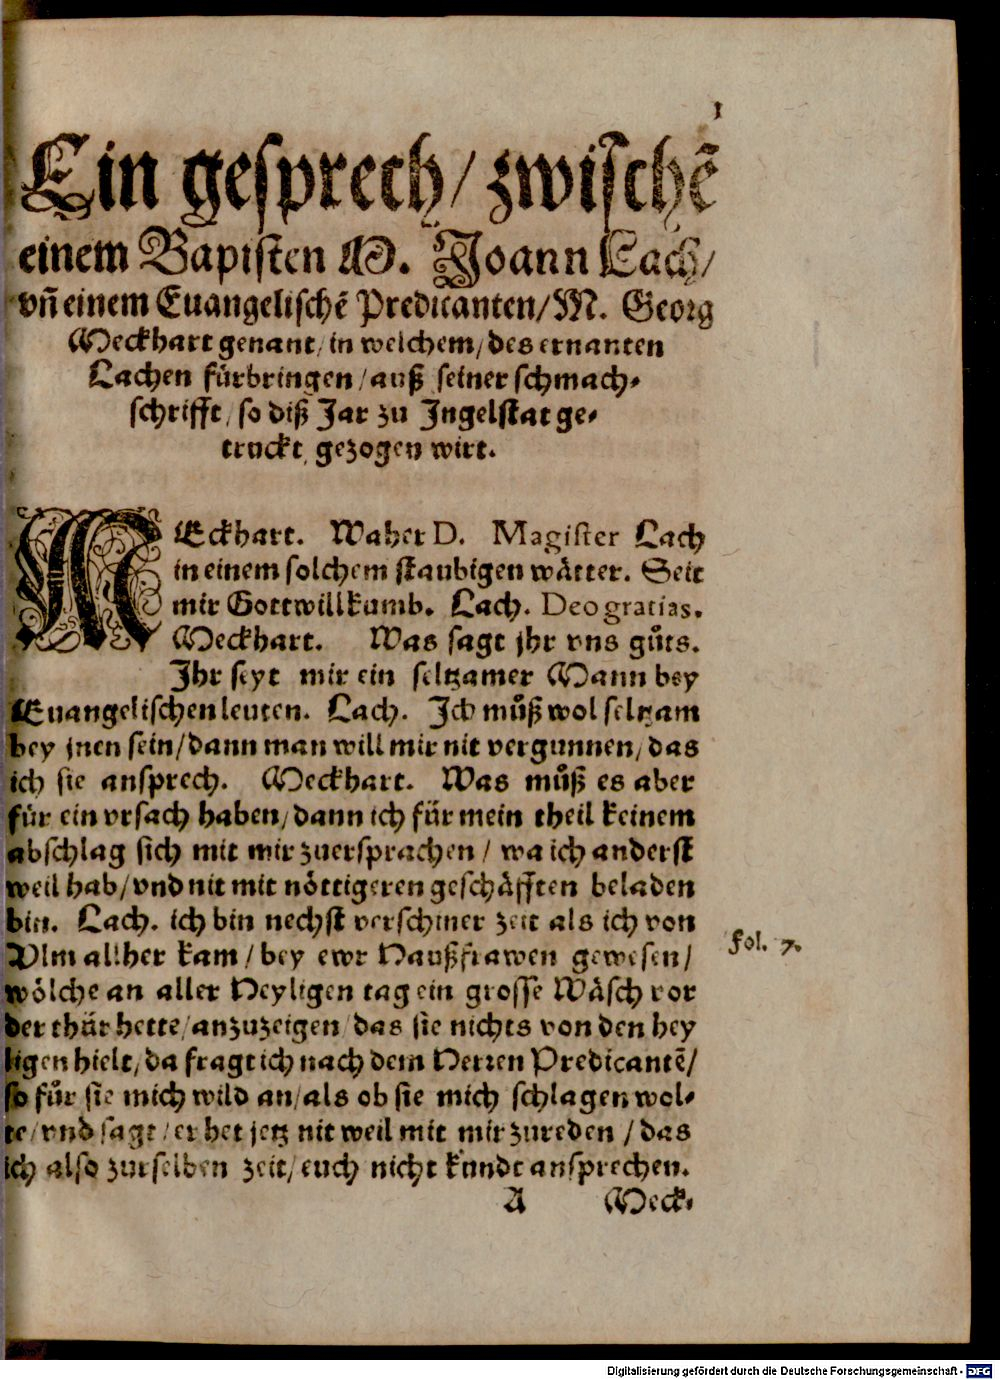 1
Ein gesprech/ zwischẽ
einem Bapisten M. Joann Lach/
vñ einem Euangelischẽ Predicanten/ M. Georg
Meckhart genant/ in welchem/ des ernanten
Lachen fürbringen/ auß seiner schmach⸗
schrifft/ so diß Jar zu Ingelstat ge⸗
truckt, gezogen wirt.
MEckhart. Waher D. Magister Lach
in einem solchem staubigen wätter. Seit
mir Gottwillkumb. Lach. Deo gratias.
Meckhart. Was sagt jhr vns gůts.
Ihr seyt mir ein seltzamer Mann bey
Euangelischen leuten. Lach. Ich můß wol seltzam
bey jnen sein/ dann man will mir nit vergunnen/ das
ich sie ansprech. Meckhart. Was můß es aber
für ein vrsach haben/ dann ich für mein theil keinem
abschlag sich mit mir zuersprachen/ wa ich anderst
weil hab/ vnd nit mit nöttigeren geschäfften beladen
bin. Lach. ich bin nechst verschiner zeit als ich von
Vlm allher kam/ bey ewr Haußfrawen gewesen/
wölche an aller Heyligen tag ein grosse Wäsch vor
der thür hette/ anzuzeigen/ das sie nichts von den hey
ligen hielt/ da fragt ich nach dem Herren Predicantẽ/
so fůr sie mich wild an/ als ob sie mich schlagen wol⸗
te/ vnd sagt/ er het jetz nit weil mit mir zureden/ das
ich also zurselben zeit/ euch nicht kundt ansprechen.
fol. 7.
A Meck⸗
Digitalisierung gefördert durch die Deutsche Forschungsgemeinschaft - DFG